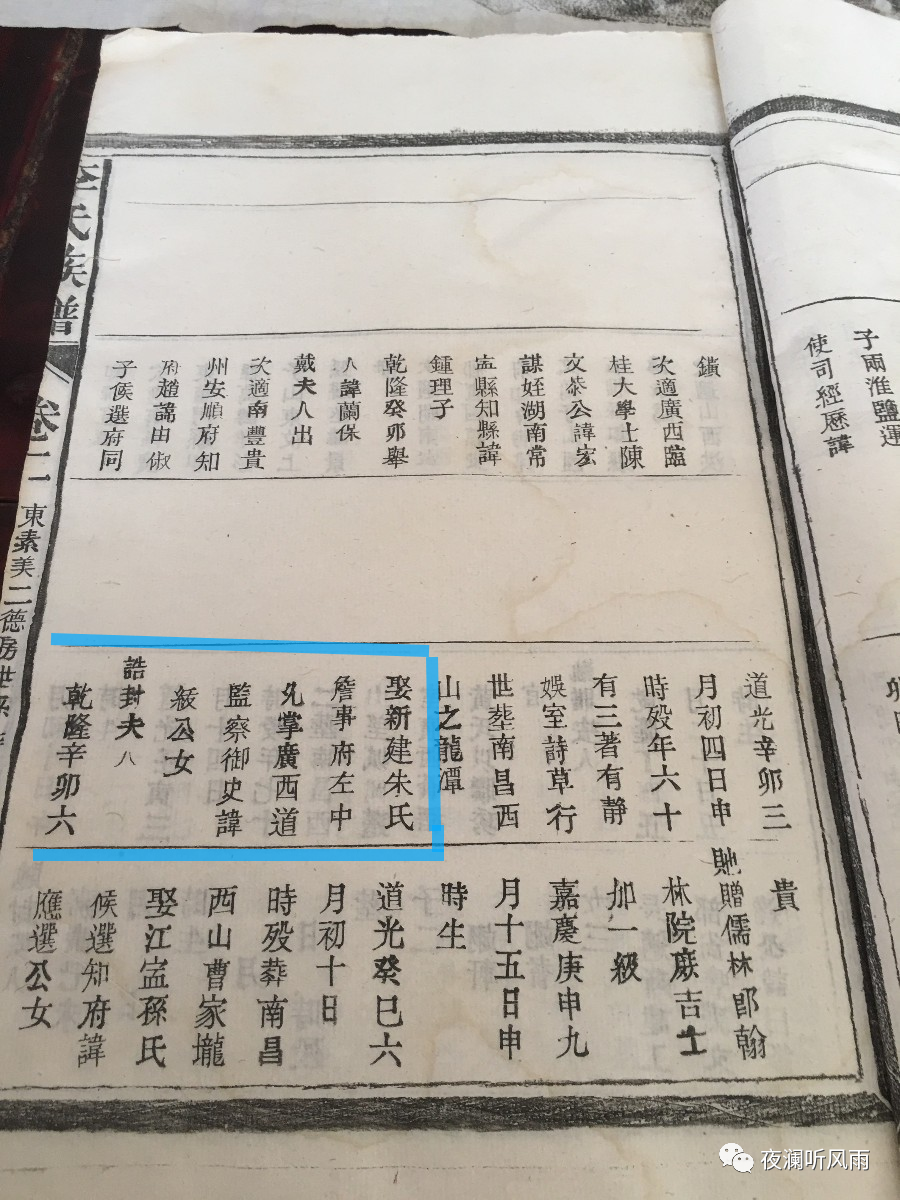 子兩淮鹽運
使司經歷諱
鎮
次適廣西臨
桂大學士陳
文恭公諱宏
謀姪湖南常
寍縣知縣諱
鍾理子
乾隆癸卯舉
人諱蘭保
戴夫人出
次適南豐貴
州安順府知
府趙諱由俶
子候選府同
道光辛卯三
月初四日申
時歿年六十
有三著有靜
娛室詩草行
世塟南昌西
山之龍潭
娶新建朱氏
詹事府左中
允掌廣西道
監察御史諱
紱公女
誥封夫人
乾隆辛卯六
貴
貤贈儒林郎翰
林院庶吉士
加一級
嘉慶庚申九
月十五日申
時生
道光癸巳六
月初十日
時歿葬南昌
西山曹家壠
娶江寍孫氏
候選知府諱
應選公女
李氏族譜
卷二
東素美二德房世系
夜澜听风雨